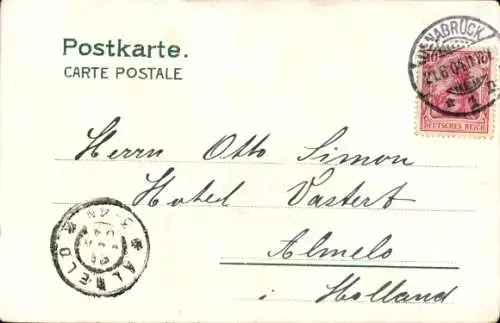 Postkarte.
CARTE POSTALE
OSNABRÜCK
DEUTSCHES REICH
Herrn Otto Simon
Hotel Vastert
Almelo
i Holland
ALMELO